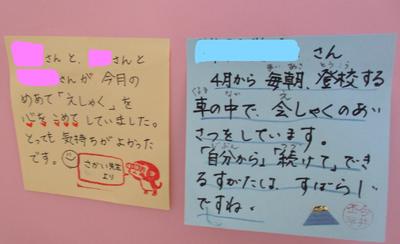 さんと、さんと
さんが 今月の
めあて「えしゃく」を
心をこめてしていました。
とっても気持ちがよかった
です。
さかい先生
より
さん
4月から毎朝、登校する
まいあさ とうこう
車の中で、会しゃくのあい
くるま なか え
さつをしています。
「自分から」「続けて」でき
じぶん つづ
るすがたは、すばらしい
ですね。